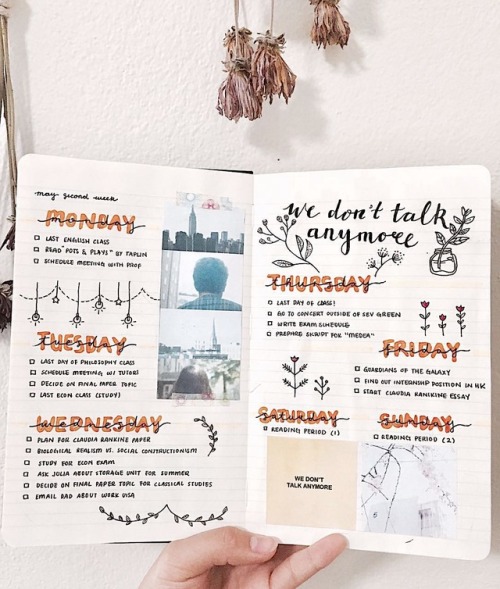 may second week
MONDAY
LAST ENGLISH CLASS
READ "POTS & PLAYS" BY TAPLIN
SCHEDULE MEETING WITH PROF
TUESDAY
LAST DAY OF PHILOSOPHY CLASS
SCHEDULE MEETING W/ TUTORI
DECIDE ON FINAL PAPER TOPIC
LAST ECON CLASS (STUDY)
WEDNESDAY
PLAN FOR CLAUDIA RANKINE PAPER
BIOLOGICAL REALISM VS. SOCIAL CONSTRUCTIONISM
STUDY FOR ECON EXAM
ASK JOLIA ABOUT STORAGE UNIT FOR SUMMER
DECIDE ON FINAL PAPER TOPIC FOR CLASSICAL STUDIES
EMAIL DAD ABOUT WORK VISA
we don't talk
anymore
THURSDAY
LAST DAY OF CLASS!
GO TO CONCERT OUTSIDE OF SEV GREEN
WRITE EXAM SCHEDULE
PREPARE SKRIPT FOR "MEDEA"
FRIDAY
GUARDIANS OF THE GALAXY
FIND OUT INTERNSHIP POSITION IN HK
START CLAUDIA RANIKINE ESSAY
SATURDAY
READING PERIOD (1)
SUNDAY
READING PERIOD (2)
WE DON'T
TALK ANYMORE